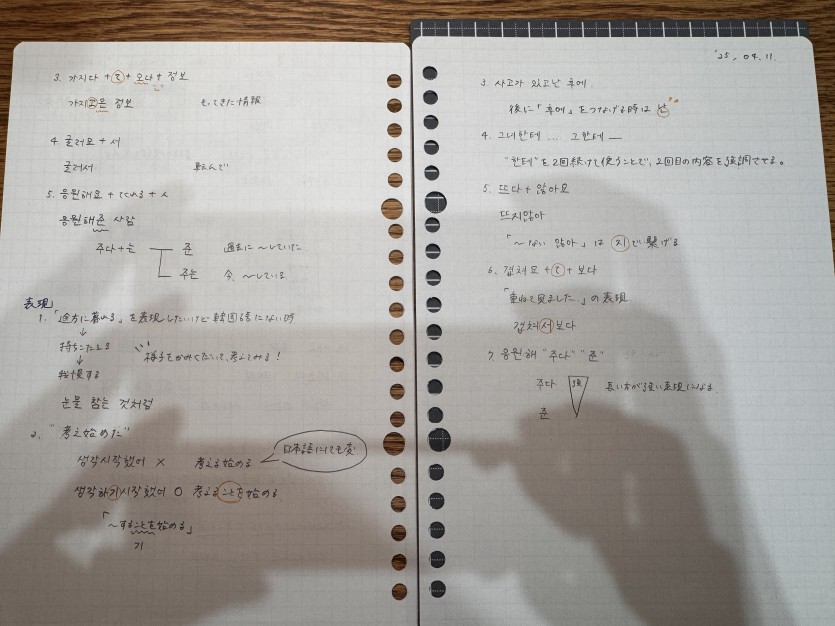 3. 가지다 + て + 오다 + 정보
가지고온 정보 もってきた情報
4. 굴러요 + 서
굴러서 転んで
5. 응원해요 + てくれる + 人
응원해준 사람
주다 + 는 준 過去に ~していた
주는 今、~している
表現
1. 「途方に暮れる」を表現したいけど韓国語にない時
↓
持ちこたえる
↓ 様子をかみくだいて、考えてみる!
我慢する
눈물 참는 것처럼
2. "考え始めた"
생각시작했어 × 考える始める 日本語にしても変
생각하기시작했어 ○ 考えることを始める
「~することを始める」
기
'25, 04. 11.
3. 사고가 있고난 후에
後に「후에」をつなげる時は 난
4. 그녀한테 .... 그한테 —
"한테"を2回続けて使うことで、2回目の内容を強調させる。
5. 뜨다 + 않아요
뜨지않아
「~ない 않아」は 지 で繋げる
6. 겹쳐요 + て + 보다
「重ねて見ました。」の表現
겹쳐서보다
7. 응원해 "주다" "준"
주다 強 長い方が強い表現になる
준